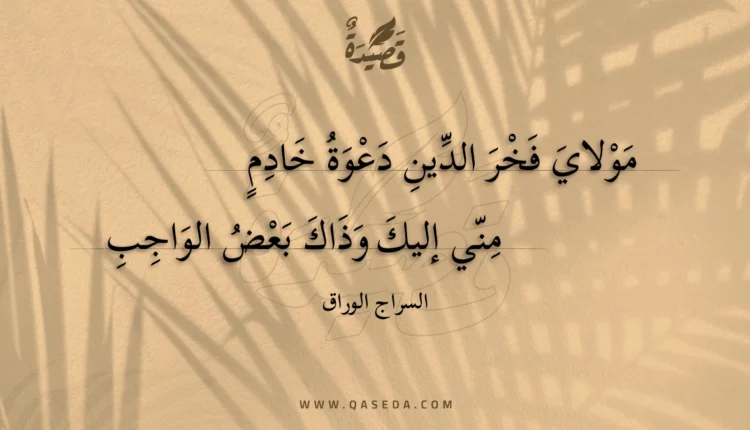 قَصِيْدَةٌ
مَوْلايَ فَخْرَ الدِّينِ دَعْوَةُ خَادِمٍ
مِنّي إليكَ وَذَاكَ بَعْضُ الوَاجِبِ
السراج الوراق
WWW.QASEDA.COM